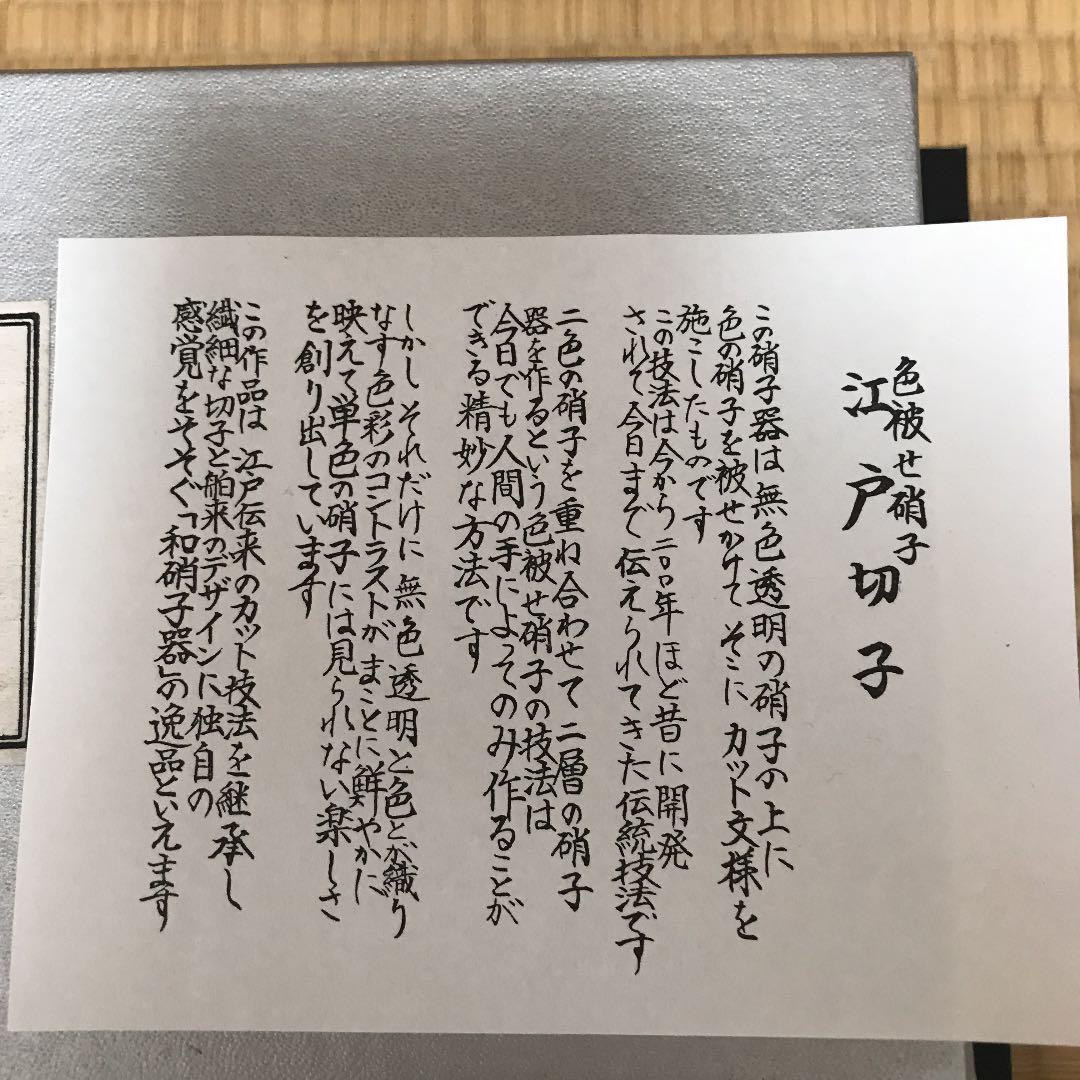 色被せ硝子
江戸切子
この硝子器は無色透明の硝子の上に
色の硝子を被せかけてそこにカット文様を
施こしたものです
この技法は今から二〇〇年ほど昔に開発
されて今日まで伝えられてきた伝統技法です
二色の硝子を重ね合わせて二層の硝子
器を作るという色被せ硝子の技法は
今日でも人間の手によってのみ作ることが
できる精妙な方法です
しかし それだけに 無色透明と色とが織り
なす色彩のコントラストがまことに鮮やかに
映えて単色の硝子には見られない楽しさ
を創り出しています
この作品は 江戸伝来のカット技法を継承し
繊細な切子と舶来のデザインに独自の
感覚をそそぐ「和硝子器」の逸品といえます